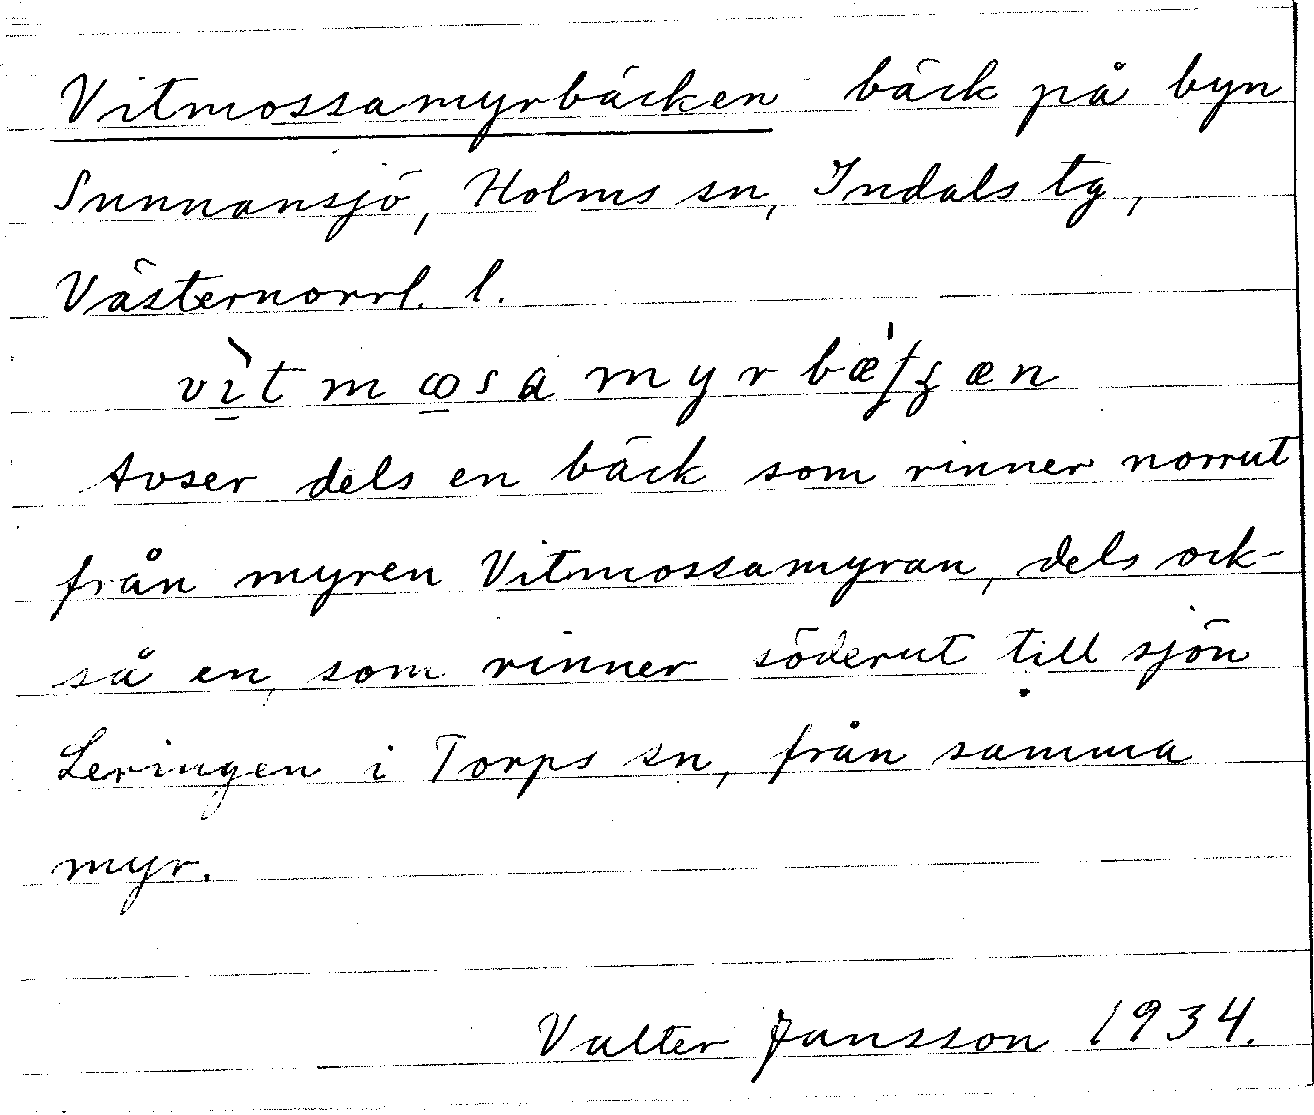 Vitmossamyrbäcken bäck på byn
Sunnansjö, Holms sn, Indals tg,
Västernorrl. l.
Avser dels en bäck som rinner norrut
från myren Vitmossamyran, dels ock-
så en, som rinner söderut till sjön
Leringen i Torps sn, från samma
myr.
Valter Jansson 1934.